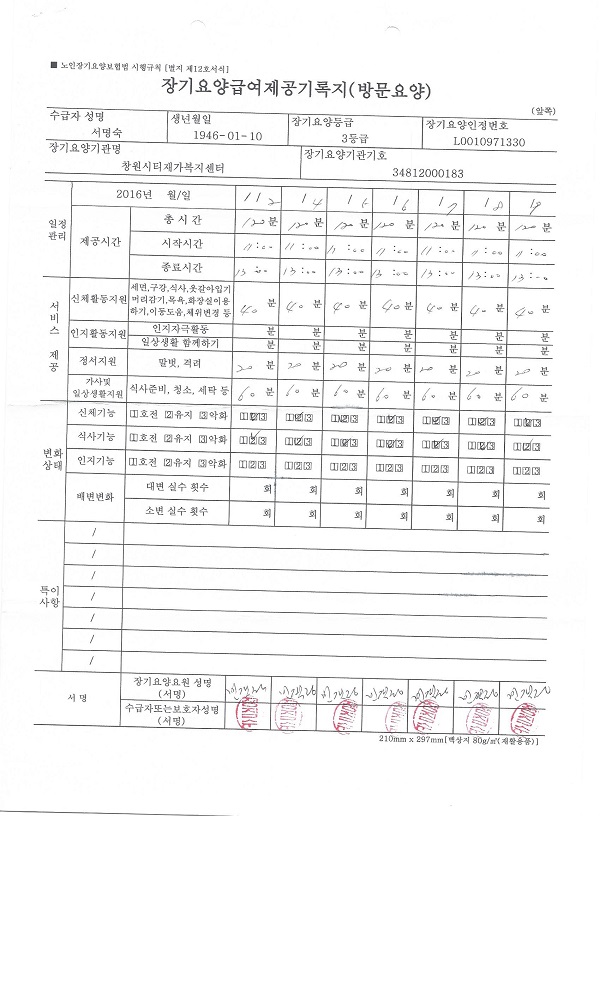 ■ 노인장기요양보험법 시행규칙 [별지 제12호서식]
장기요양급여제공기록지(방문요양)
(앞쪽)
수급자 성명 생년월일 장기요양등급 장기요양인정번호
서명숙 1946-01-10 3등급 L0010971330
장기요양기관명 장기요양기관기호
창원시티재가복지센터 34812000183
2016년 월/일 1/2 1/4 1/5 1/6 1/7 1/8 1/9
일정관리 제공시간
총 시 간 120분 120분 120분 120분 120분 120분 120분
시작시간 11:00 11:00 11:00 11:00 11:00 11:00 11:00
종료시간 13:00 13:00 13:00 13:00 13:00 13:00 13:00
서비스 제공
신체활동지원
세면,구강,식사,옷갈아입기
머리감기,목욕,화장실이용
하기,이동도움,체위변경 등
40분 40분 40분 40분 40분 40분 40분
인지활동지원
인지자극활동 분 분 분 분 분 분 분
일상생활 함께하기 분 분 분 분 분 분 분
정서지원 말벗, 격려 20분 20분 20분 20분 20분 20분 20분
가사및
일상생활지원 식사준비, 청소, 세탁 등 60분 60분 60분 60분 60분 60분 60분
변화상태
신체기능 1호전 2유지 3악화 123 123 123 123 123 123 123
식사기능 1호전 2유지 3악화 123 123 123 123 123 123 123
인지기능 1호전 2유지 3악화 123 123 123 123 123 123 123
배변변화
대변 실수 횟수 회 회 회 회 회 회 회
소변 실수 횟수 회 회 회 회 회 회 회
특이사항
/
/
/
/
/
/
/
서 명
장기요양요원 성명
(서명)
수급자또는보호자성명
(서명)
210mm x 297mm[백상지 80g/㎡(재활용품)]